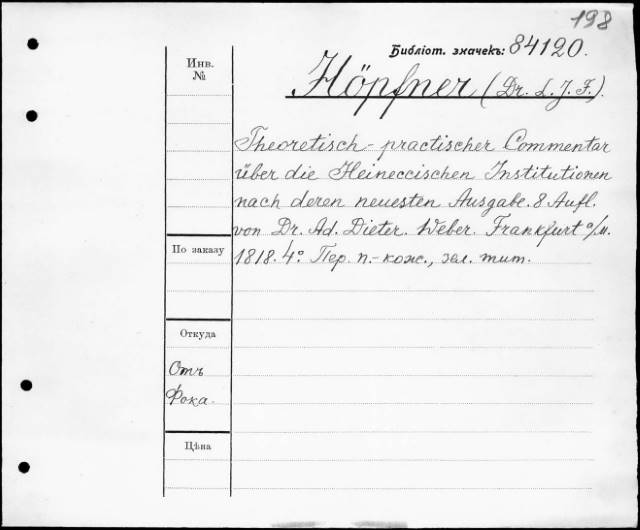 198
Библіот. значекъ: 84120.
Инв.
№
Höpfner (Dr. L. J. F.).
Theoretisch-practischer Commentar
über die Heineccischen Institutionen
nach deren neuesten Ausgabe. 8 Aufl.
von Dr. Ad. Dieter. Weber. Frankfurt a/M.
По заказу
1818. 4º Пер. п.-кож., зал. тит.
Откуда
Отъ
Фока.
Цѣна